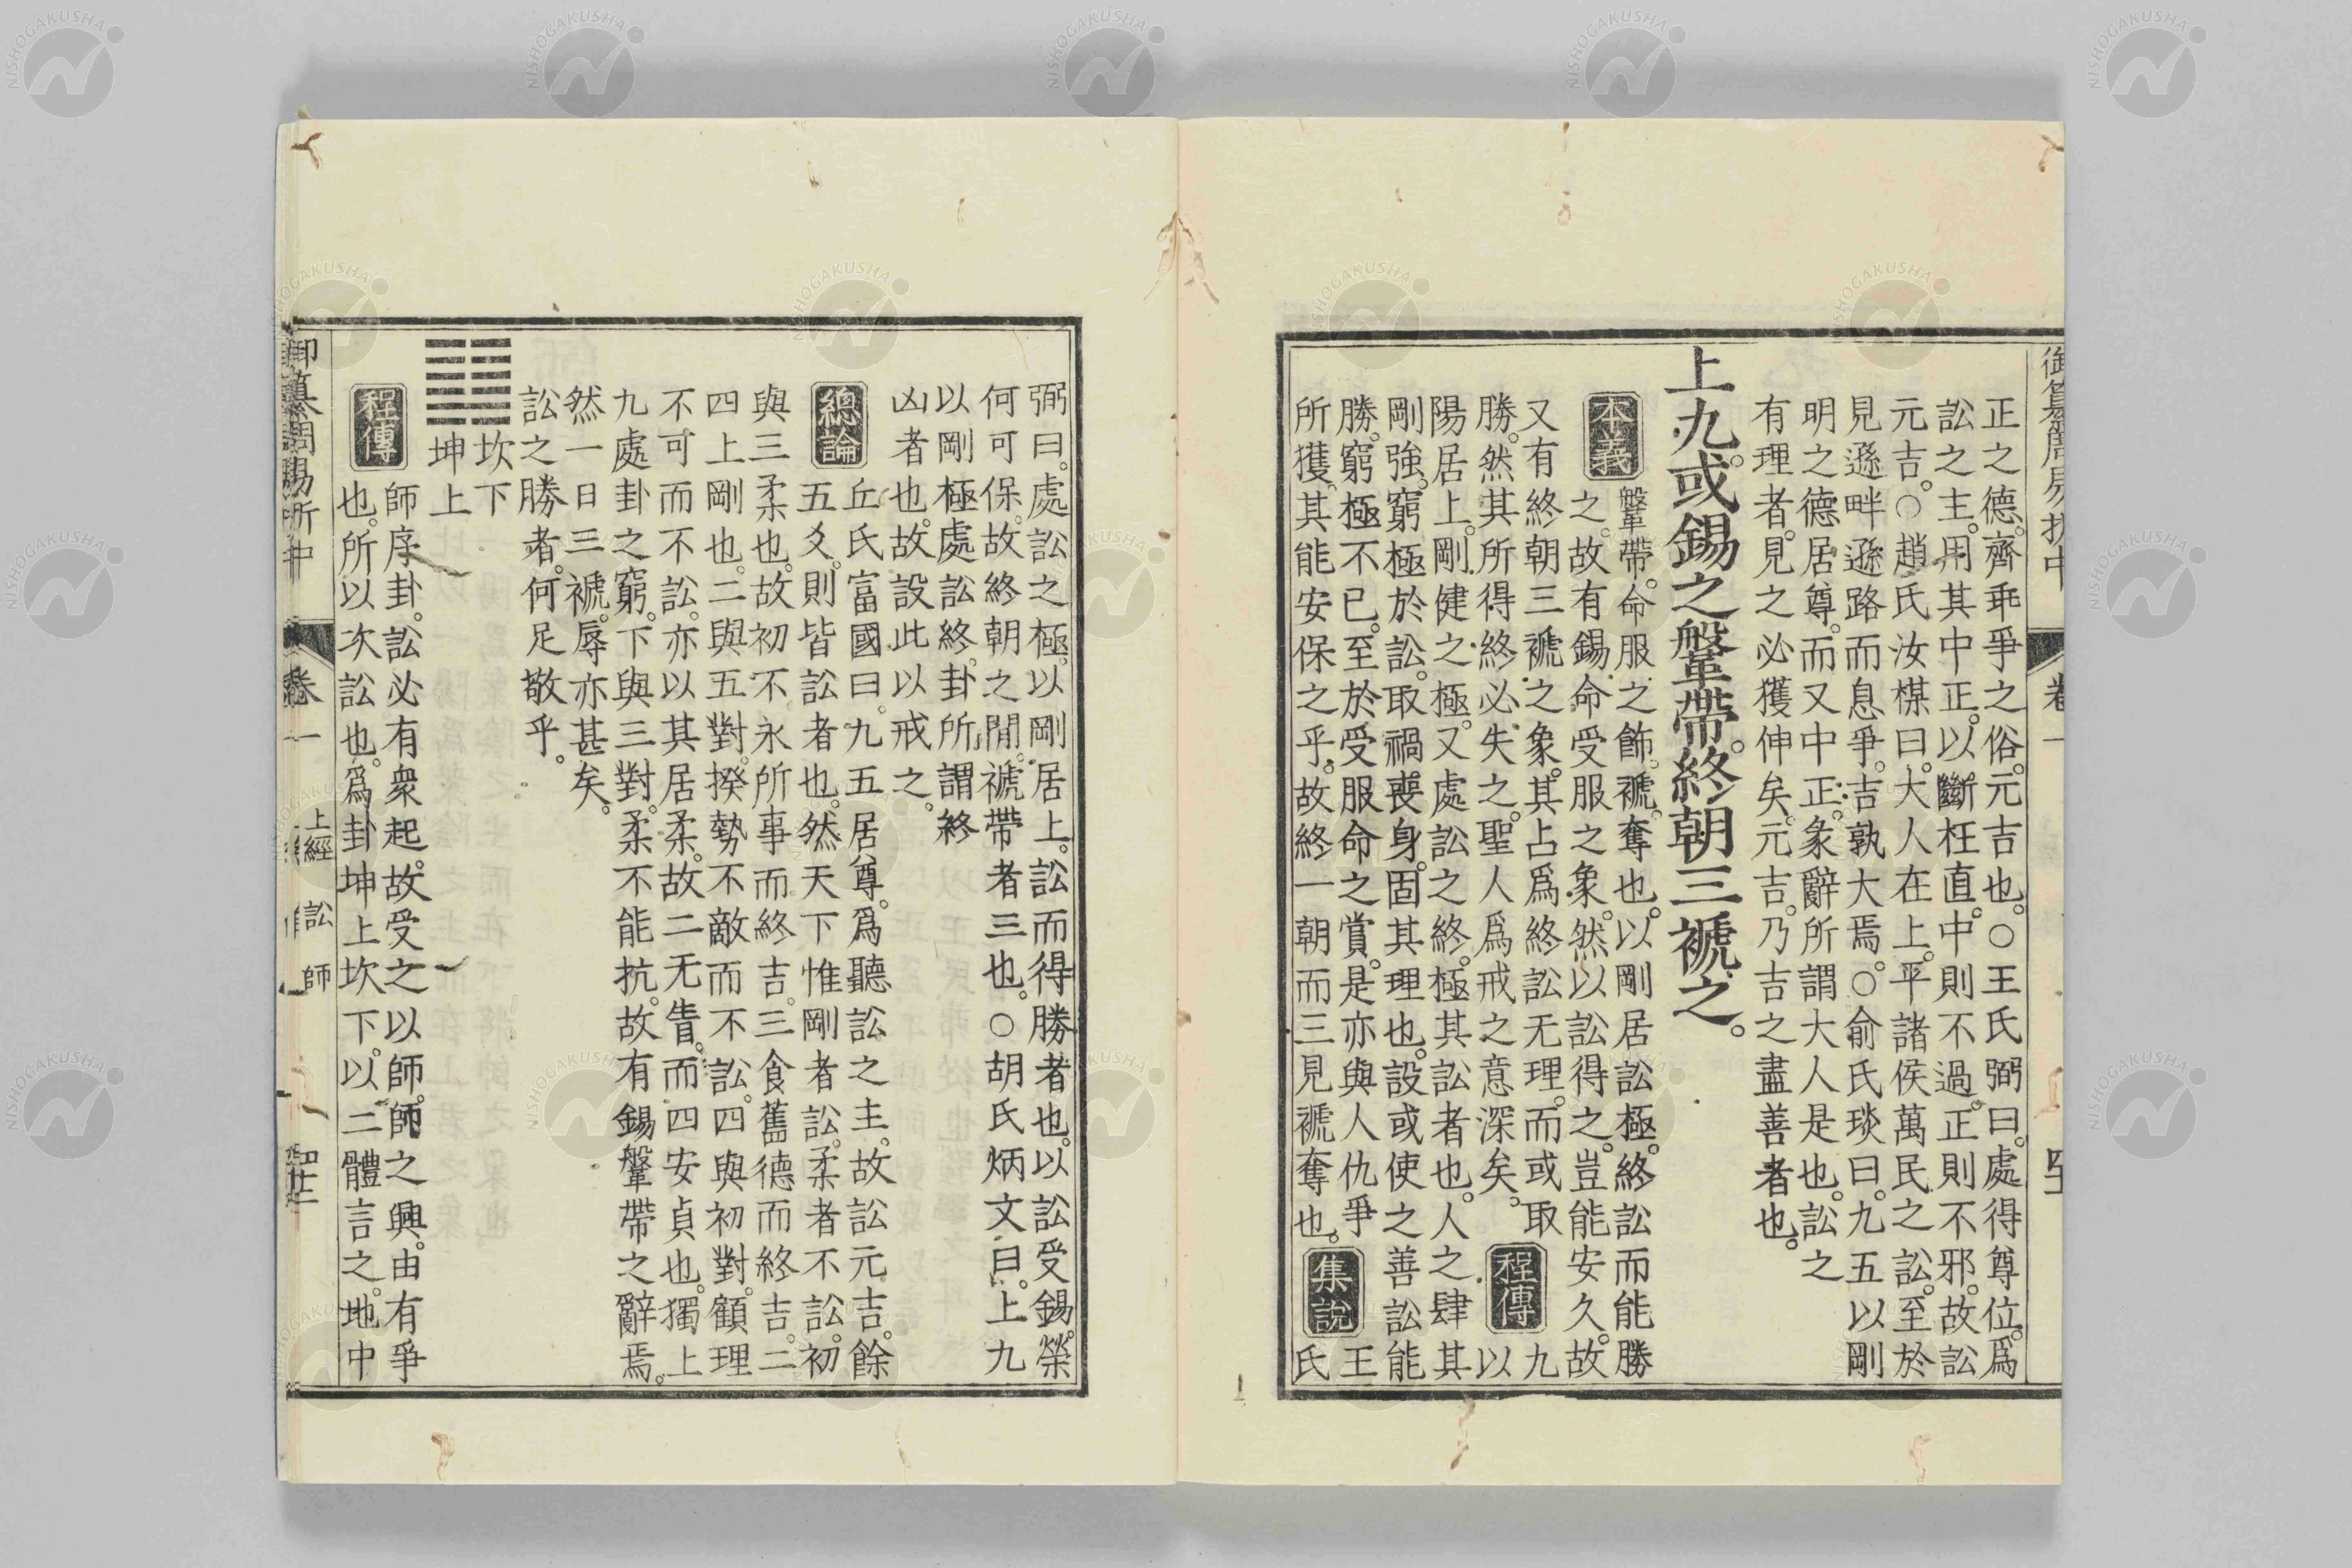 御纂周易折中
卷一
正之德。齊乖爭之俗。元吉也。○王氏弼曰。處得尊位。爲
訟之主。用其中正。以斷枉直。中則不過。正則不邪。故訟
元吉。○趙氏汝楳曰。大人在上。平諸侯萬民之訟。至於
見遜畔遜路而息爭。吉孰大焉。○俞氏琰曰。九五以剛
明之德居尊。而又中正。彖辭所謂大人是也。訟之
有理者。見之必獲伸矣。元吉。乃吉之盡善者也。
上九。或錫之鞶帶。終朝三褫之。
本義
鞶帶。命服之飾。褫。奪也。以剛居訟極。終訟而能勝
之。故有錫命受服之象。然以訟得之。豈能安久。故
又有終朝三褫之象。其占爲終訟无理。而或取
勝。然其所得終必失之。聖人爲戒之意深矣。
程傳
九
以
陽居上。剛健之極。又處訟之終。極其訟者也。人之肆其
剛強。窮極於訟。取禍喪身。固其理也。設或使之善訟能
勝。窮極不已。至於受服命之賞。是亦與人仇爭
所獲。其能安保之乎。故終一朝而三見褫奪也。
集說
王
氏
弼曰。處訟之極。以剛居上。訟而得勝者也。以訟受錫。榮
何可保。故終朝之閒。褫帶者三也。○胡氏炳文曰。上九
以剛極處訟終。卦所謂終
凶者也。故設此以戒之。
總論
丘氏富國曰。九五居尊。爲聽訟之主。故訟元吉。餘
五爻。則皆訟者也。然天下惟剛者訟。柔者不訟。初
與三柔也。故初不永所事而終吉。三食舊德而終吉。二
四上剛也。二與五對。揆勢不敵而不訟。四與初對。顧理
不可而不訟。亦以其居柔。故二无眚。而四安貞也。獨上
九處卦之窮。下與三對。柔不能抗。故有錫鞶帶之辭焉。
然一日三褫。辱亦甚矣。
訟之勝者。何足敬乎。
坎下
坤上
程傳
師序卦。訟必有衆起。故受之以師。師之興。由有爭
也。所以次訟也。爲卦坤上坎下。以二體言之。地中
御纂周易折中
卷一
上經
訟
師
NISHOGAKUSHA